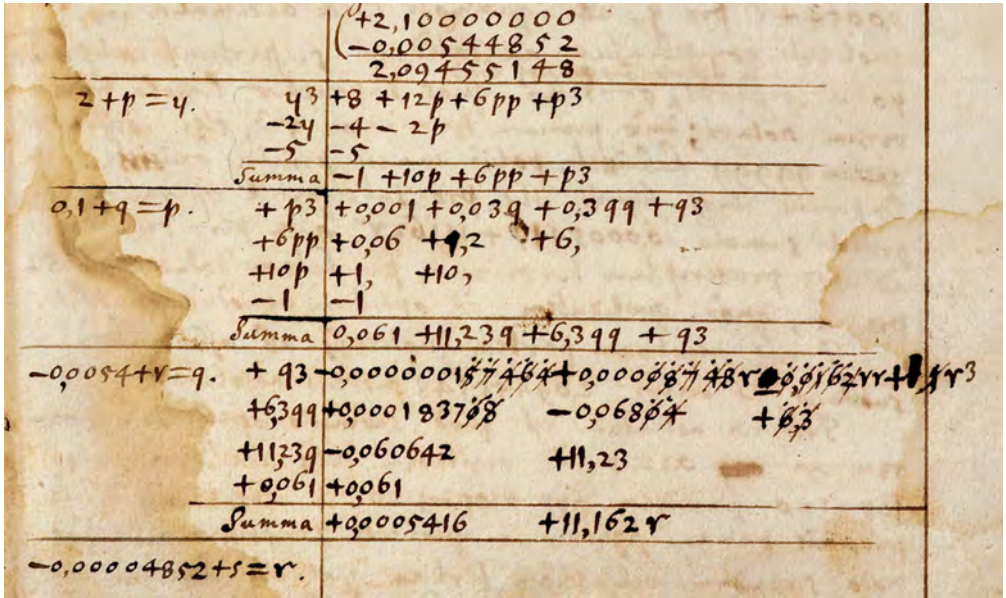 +2,10000000
-0,00544852
2,09455148
2+p=y. y3 +8 +12p+6pp+p3
-2y -4 - 2p
-5 -5
Summa -1 +10p+6pp+p3
0,1+q=p. +p3 +0,001 +0,03q +0,3qq +q3
+6pp +0,06 +1,2 +6,
+10p +1, +10,
-1 -1
Summa 0,061 +11,23q+6,3qq + q3
-0,0054+r=q. + q3 -0,000000157464+0,00008748r-0,0162rr+r3
+6,3qq +0,000183708 -0,06804 +6,3
+11,23q -0,060642 +11,23
+0,061 +0,061
Summa +0,0005416 +11,162r
-0,00004852+s=r.